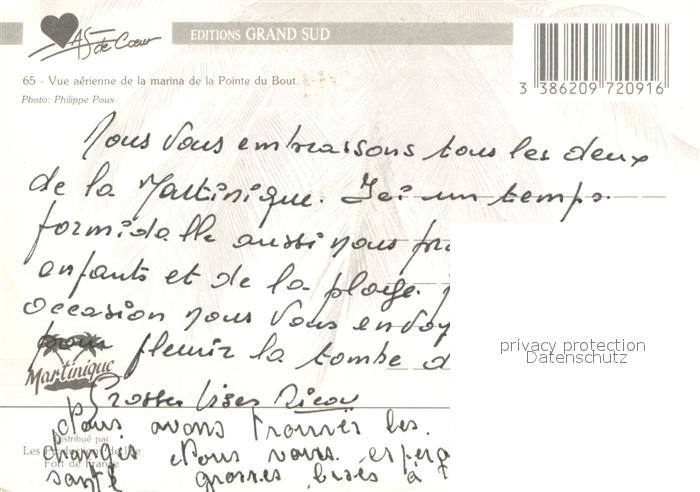 As de Cœur
EDITIONS GRAND SUD
65 - Vue aérienne de la marina de la Pointe du Bout.
Photo: Philippe Poux.
3 386209 720916
Nous Vous embrassons tous les deux
de la Martinique. Ici un temps
formidable aussi nous pro
enfants et de la plage.
occasion nous Vous envoy
pour fleurir la tombe d
privacy protection
Datenschutz
Martinique
Grosses bises
Nous avons trouvés les
Distribué par
changés Nous vous espéra
Les Productions de l'Ile
Fort de France
santé grosses bises à